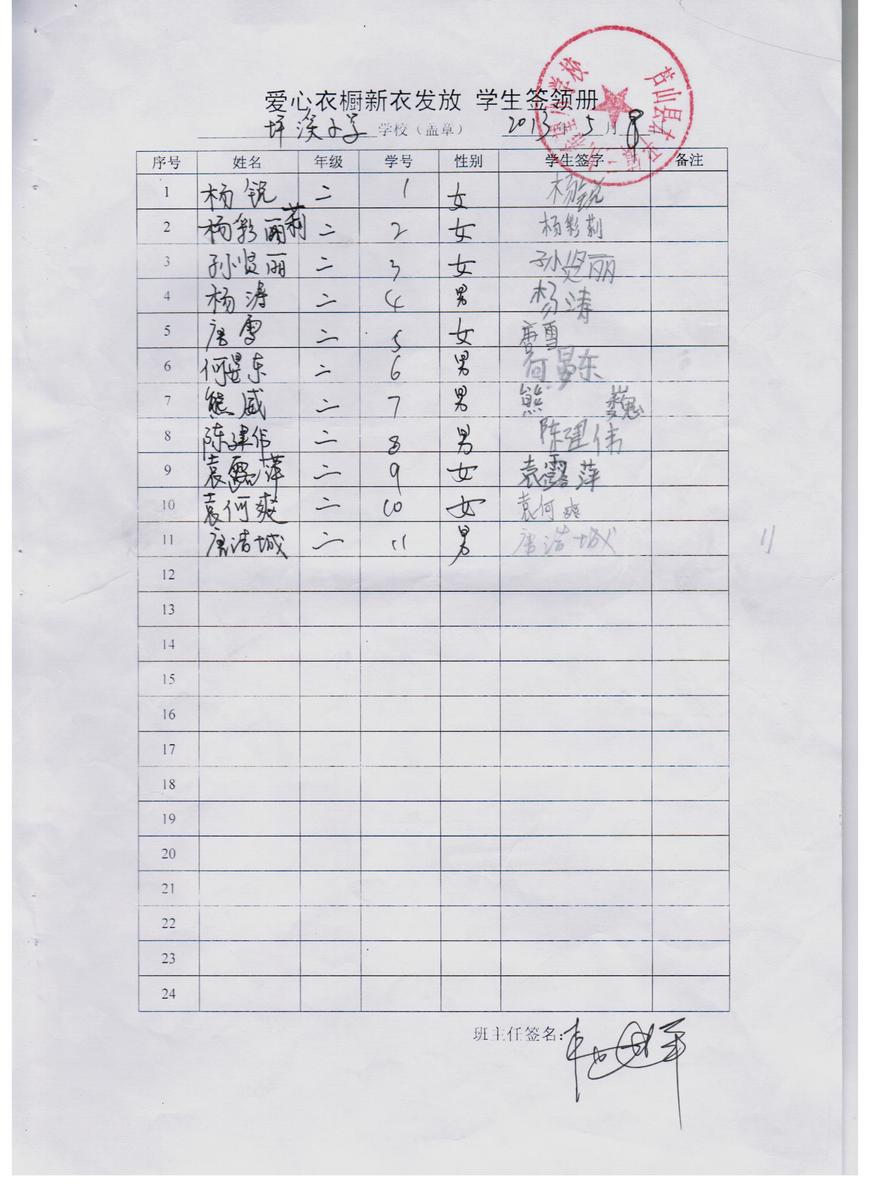 爱心衣橱新衣发放 学生签领册
坪溪小学 学校（盖章） 2013年5月8
序号 姓名 年级 学号 性别 学生签字 备注
1 杨锐 二 1 女 杨锐
2 杨彩丽莉 二 2 女 杨彩莉
3 孙贤丽 二 3 女 孙贤丽
4 杨涛 二 4 男 杨涛
5 唐雪 二 5 女 唐雪
6 何晏东 二 6 男 何晏东
7 熊威 二 7 男 熊 巍
8 陈建伟 二 8 男 陈建伟
9 袁露萍 二 9 女 袁露萍
10 袁何爽 二 10 女 袁何爽
11 唐洁城 二 11 男 唐洁城 11
12
13
14
15
16
17
18
19
20
21
22
23
24
班主任签名: